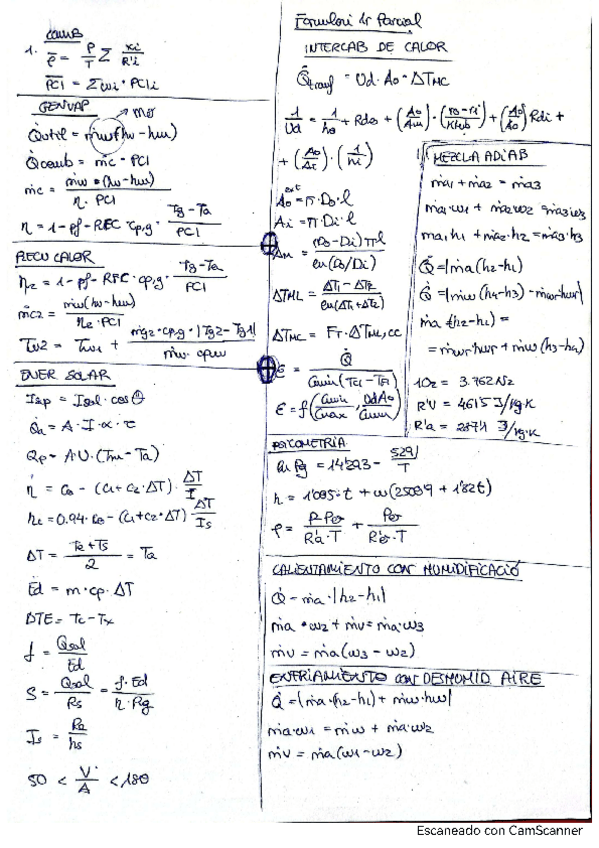 comB
1. ρ̄ = P/T Σ xi/R'i
PCI = Σωi · PCIi
GENVAP
→ mor
Q̇util = ṁw(hv - hw)
Q̇comb = ṁc · PCI
ṁc = ṁw · (hv - hw) / η · PCI
η = 1 - pf - REC · cp,g · Tg - Ta / PCI
RECU CALOR
η2 = 1 - pf - RFC · cp,g · Tg - Ta / PCI
ṁc2 = ṁw(hv - hw) / η2 · PCI
Tw2 = Tw1 + ṁg2 · cp,g · |Tg2 - Tg1| / ṁw · cpw
ENER SOLAR
Isp = Isol · cosθ
Q̇a = A · I · α · τ
Qp = A·U·(Tm - Ta)
η = C0 - (C1 + C2 · ΔT) · ΔT/I
ηc = 0.94 · C0 - (C1 + C2 · ΔT) · ΔT/Is
ΔT = Te + Ts / 2 - Ta
Ėd = m · cp · ΔT
DTE = Tc - Tx
f = Qsol / Ed
S = Qsol / Rs = f · Ed / η · Rg
Is = Rg / hs
50 < V/A < 180
Formulari 1r Parcial
INTERCAB DE CALOR
Q̇transf = Ud · Ao · ΔTMC
1/Ud = 1/ho + Rdo + (Ao/Am) · (ro - ri / Ktub) + (Ao/Ai) Rdi +
+ (Ao/Ai) · (1/hi)
ext
Ao = π · Do · l
Ai = π · Di · l
Am = (Do - Di) π l / ln(Do/Di)
ΔTML = ΔT1 - ΔT2 / ln(ΔT1 ÷ ΔT2)
ΔTMC = Fr · ΔTML,cc
ε = Q̇ / Cmin (Tc1 - TF1)
ε = f(Cmin/Cmax, UdAo/Cmin)
MEZCLA ADIAB
ṁa1 + ṁa2 = ṁa3
ṁa1·w1 + ṁa2 w2 = ṁa3 w3
ṁa1 h1 + ṁa2 · h2 = ṁa3 · h3
Q̇ = |ṁa (h2 - h1)
Q̇ = |ṁw (h4 - h3) - ṁwr hwr|
ṁa (h2 - h1) =
= ṁwr hwr + ṁw (h3 - h4)
1O2 = 3.762 N2
R'v = 461'5 J/kg·K
R'a = 287'1 J/kg·K
PSICOMETRIA
ln Pg = 14'293 - 5291/T
h = 1'005 · t + ω(2500'9 + 1'82t)
ρ = P - Pv / R'a · T + Pv / R'v · T
CALENTAMIENTO CON HUMIDIFICACIÓ
Q̇ = ṁa · |h2 - h1|
ṁa · w2 + ṁv = ṁa · w3
ṁv = ṁa (w3 - w2)
ENFRIAMIENTO CON DESHUMID AIRE
Q̇ = |ṁa · (h2 - h1) + ṁw · hw|
ṁa·w1 = ṁw + ṁa·w2
ṁv = ṁa (w1 - w2)
Escaneado con CamScanner